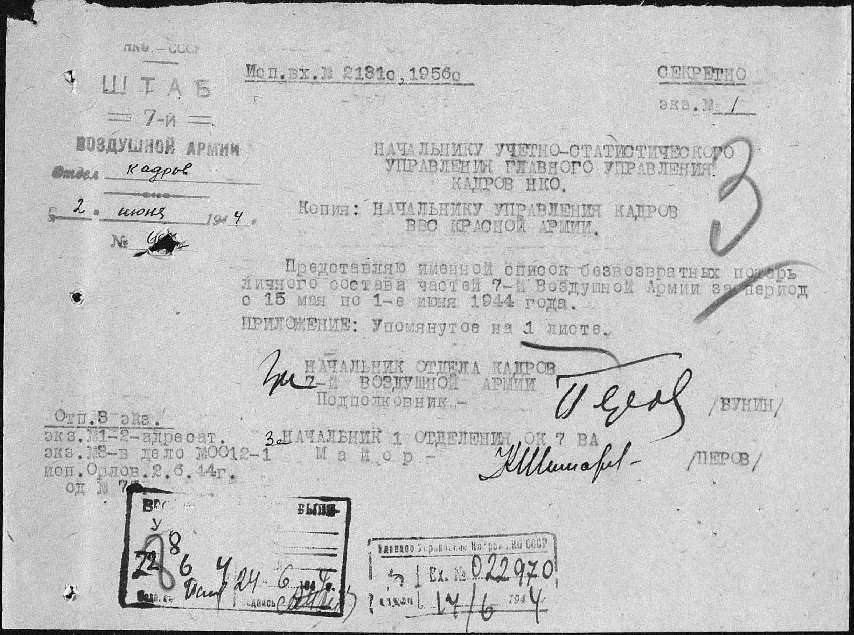 НКО – СССР
ШТАБ
7-й
ВОЗДУШНОЙ АРМИИ
Отдел кадров
2 июня 1944 г.
№
Исп.вх.№ 2181с,1956с
СЕКРЕТНО
экз.№ 1
3
НАЧАЛЬНИКУ УЧЕТНО-СТАТИСТИЧЕСКОГО
УПРАВЛЕНИЯ ГЛАВНОГО УПРАВЛЕНИЯ
КАДРОВ НКО.
Копия: НАЧАЛЬНИКУ УПРАВЛЕНИЯ КАДРОВ
ВВС КРАСНОЙ АРМИИ.
Представляю именной список безвозвратных потерь
личного состава частей 7-й Воздушной Армии за период
с 15 мая по 1-е июня 1944 года.
ПРИЛОЖЕНИЕ: Упомянутое на 1 листе.
НАЧАЛЬНИК ОТДЕЛА КАДРОВ
7-й ВОЗДУШНОЙ АРМИИ
Подполковник –
/БУНИН/
За НАЧАЛЬНИК 1 ОТДЕЛЕНИЯ ОК 7 ВА
Майор –
/ПЕРОВ/
Отп.3 экз.
экз.№1-2-адресат.
экз.№3-в дело №0012-1
исп.Орлов.2.6.44г.
24 6 1944 г.
Главное Управление Кадров НКО СССР
Вх. № 022970
17/6 1944